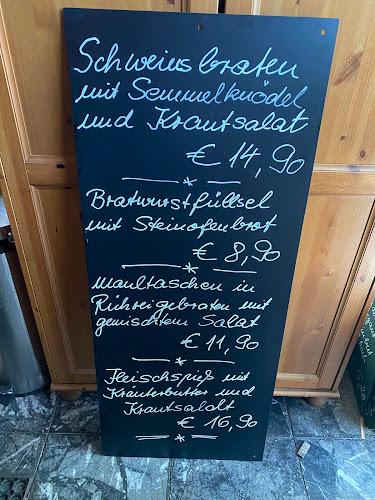 Schweinsbraten
mit Semmelknödel
und Krautsalat
€ 14,90
Bratwurstfüllsel
mit Steinofenbrot
€ 8,90
Maultaschen in
Rühreigebraten mit
gemischtem Salat
€ 11,90
Fleischspieß mit
Kräuterbutter und
Krautsaladt
€ 16,90